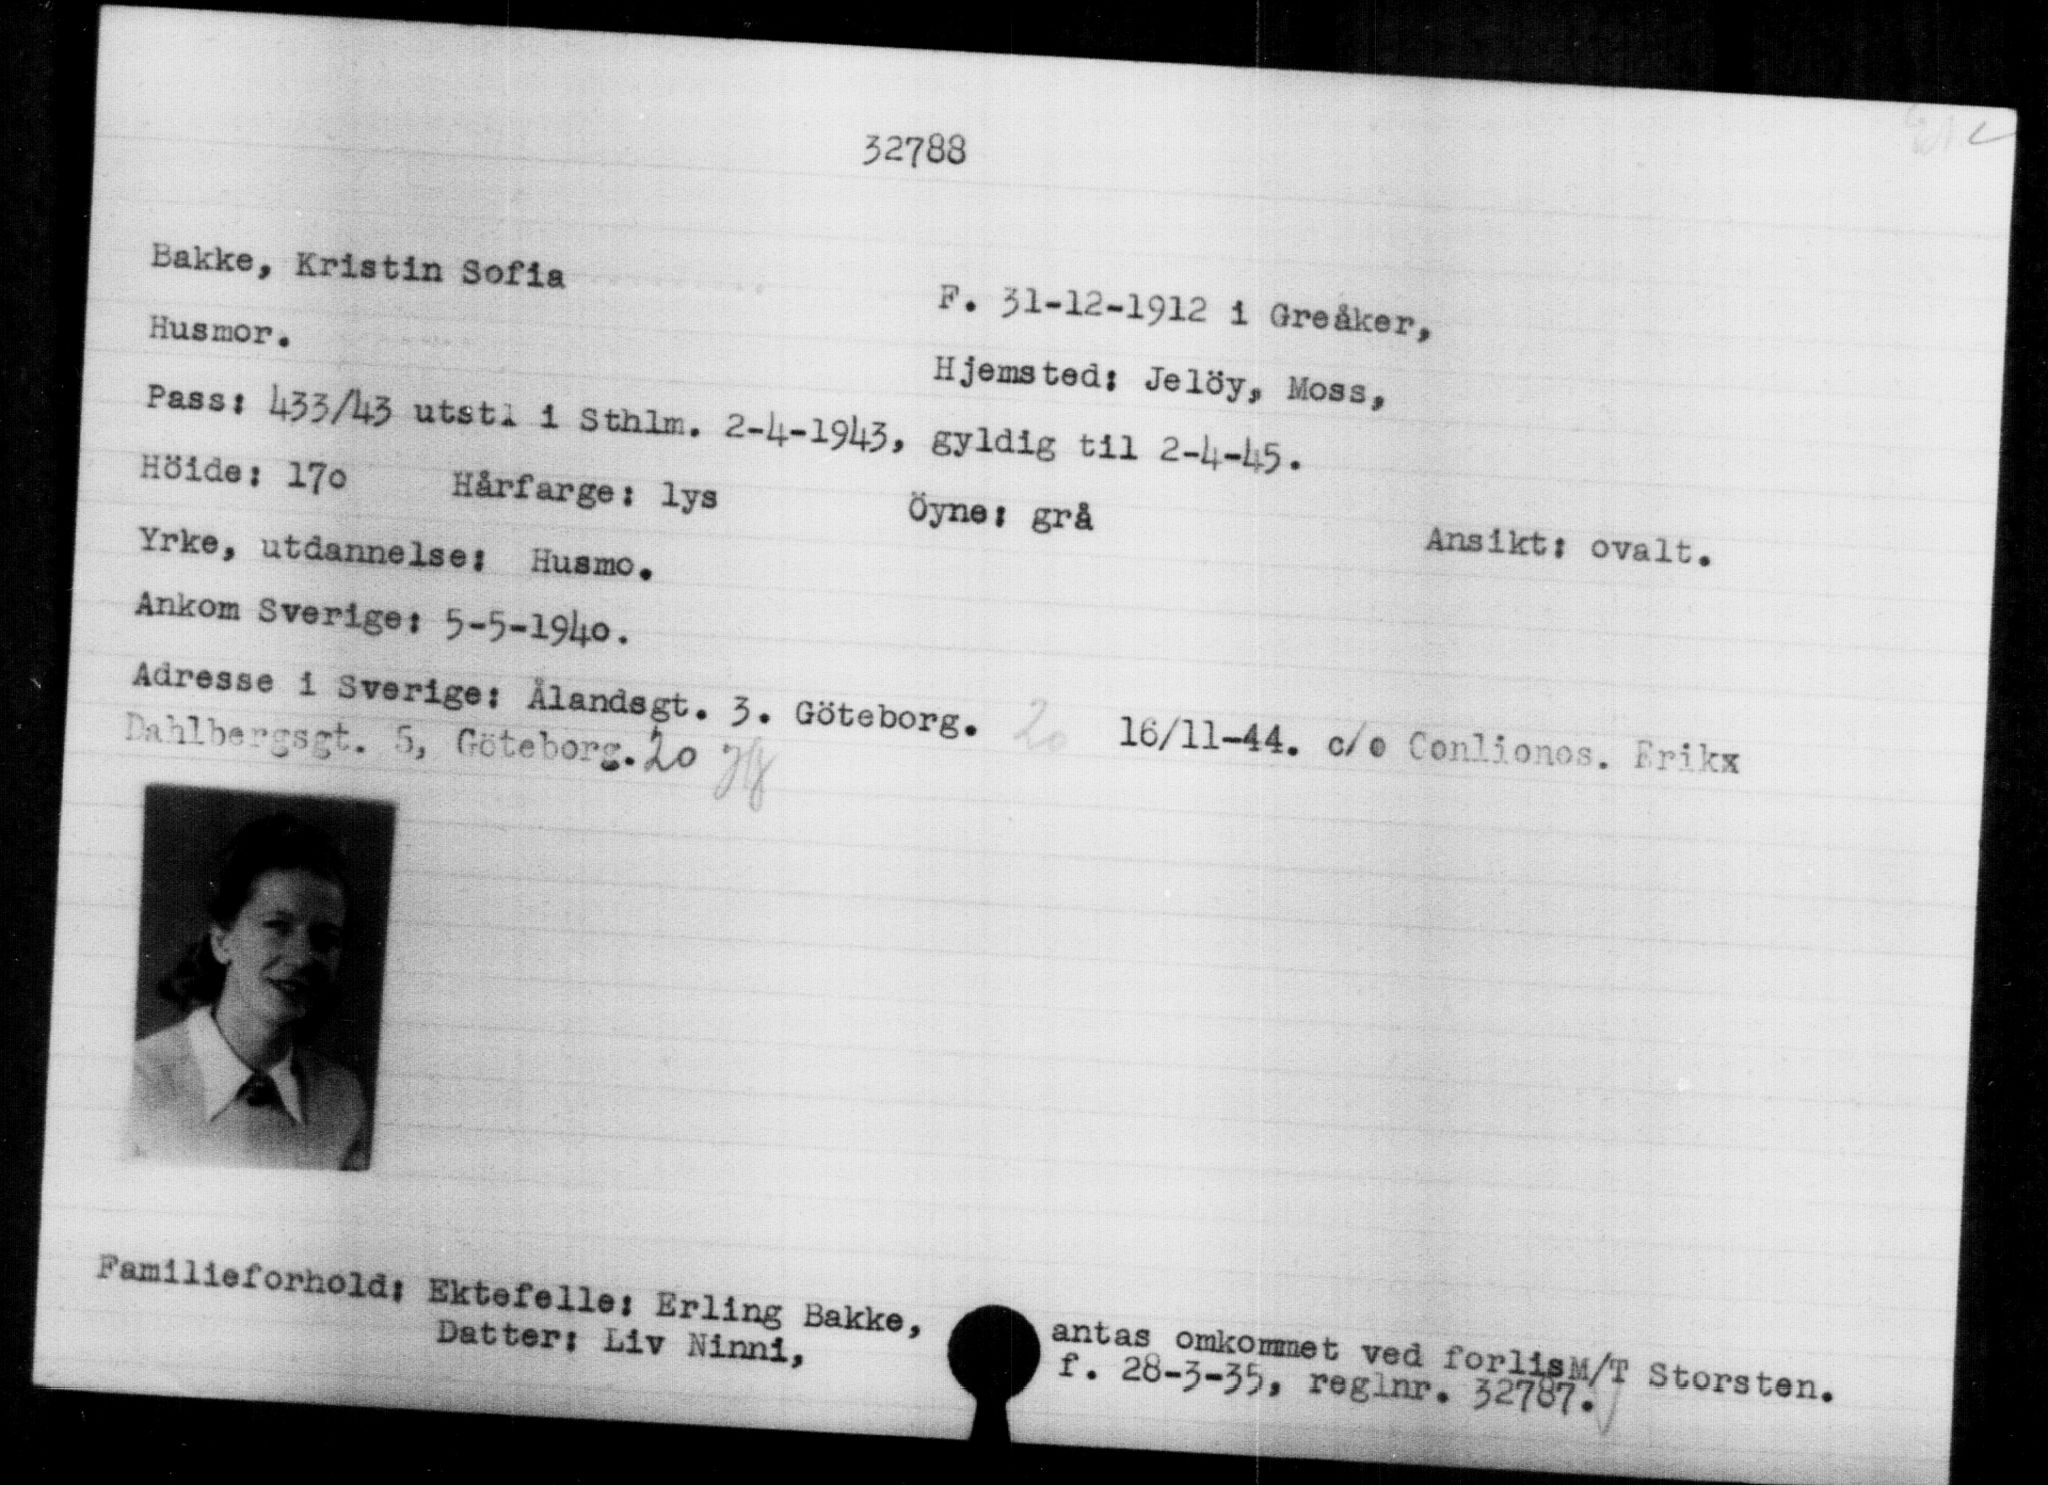 32788
Bakke, Kristin Sofia
F. 31-12-1912 i Greåker,
Husmor.
Hjemsted: Jelöy, Moss,
Pass: 433/43 utstl i Sthlm. 2-4-1943, gyldig til 2-4-45.
Höide: 170 Hårfarge: lys Öyne: grå Ansikt: ovalt.
Yrke, utdannelse: Husmo.
Ankom Sverige: 5-5-1940.
Adresse i Sverige: Ålandsgt. 3. Göteborg. 20 16/11-44. c/o Conlionos. Erikx
Dahlbergsgt. 5, Göteborg. 20
Familieforhold: Ektefelle: Erling Bakke, antas omkommet ved forlis M/T Storsten.
Datter: Liv Ninni, f. 28-3-35, reglnr. 32787.